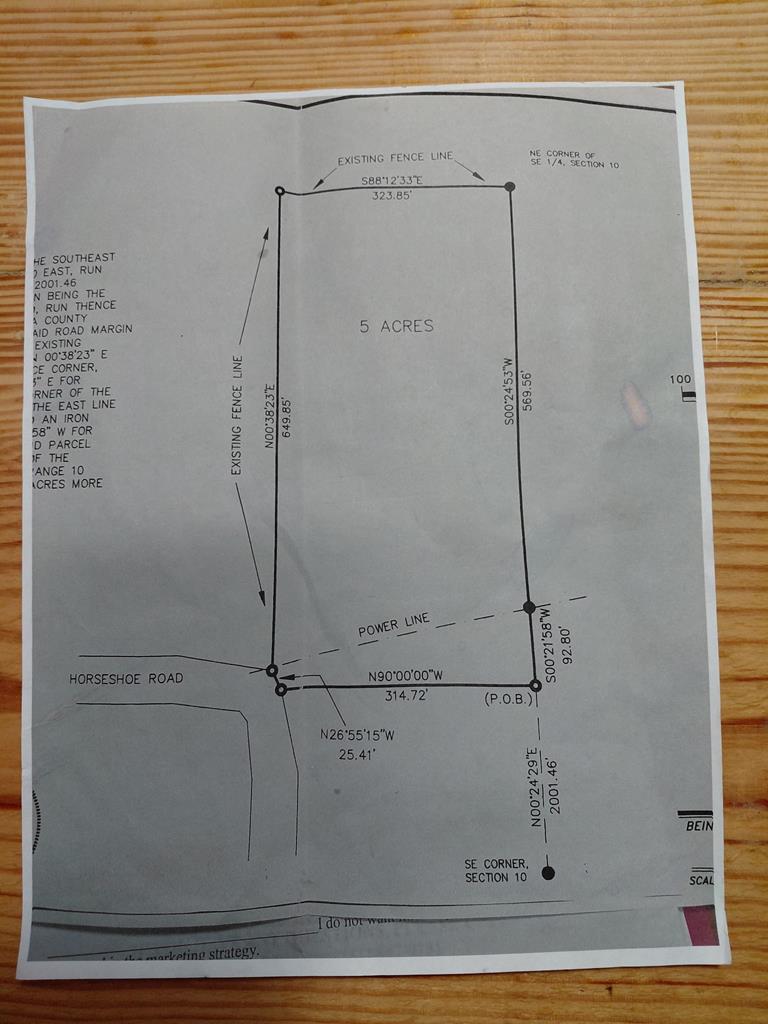 NE CORNER OF
SE 1/4, SECTION 10
EXISTING FENCE LINE
S88°12'33"E
323.85'
HE SOUTHEAST
EAST, RUN
2001.46
N BEING THE
, RUN THENCE
A COUNTY
AID ROAD MARGIN
EXISTING
N 00°38'23" E
CE CORNER,
" E FOR
RNER OF THE
THE EAST LINE
AN IRON
58" W FOR
D PARCEL
OF THE
ANGE 10
ACRES MORE
5 ACRES
EXISTING FENCE LINE
N00°38'23"E
649.85'
S00°24'53"W
569.56'
100
POWER LINE
S00°21'58"W
92.80'
HORSESHOE ROAD
N90°00'00"W
314.72'
(P.O.B.)
N26°55'15"W
25.41'
N00°24'29"E
2001.46'
SE CORNER,
SECTION 10
BEIN
SCAL
I do not
the marketing strategy.